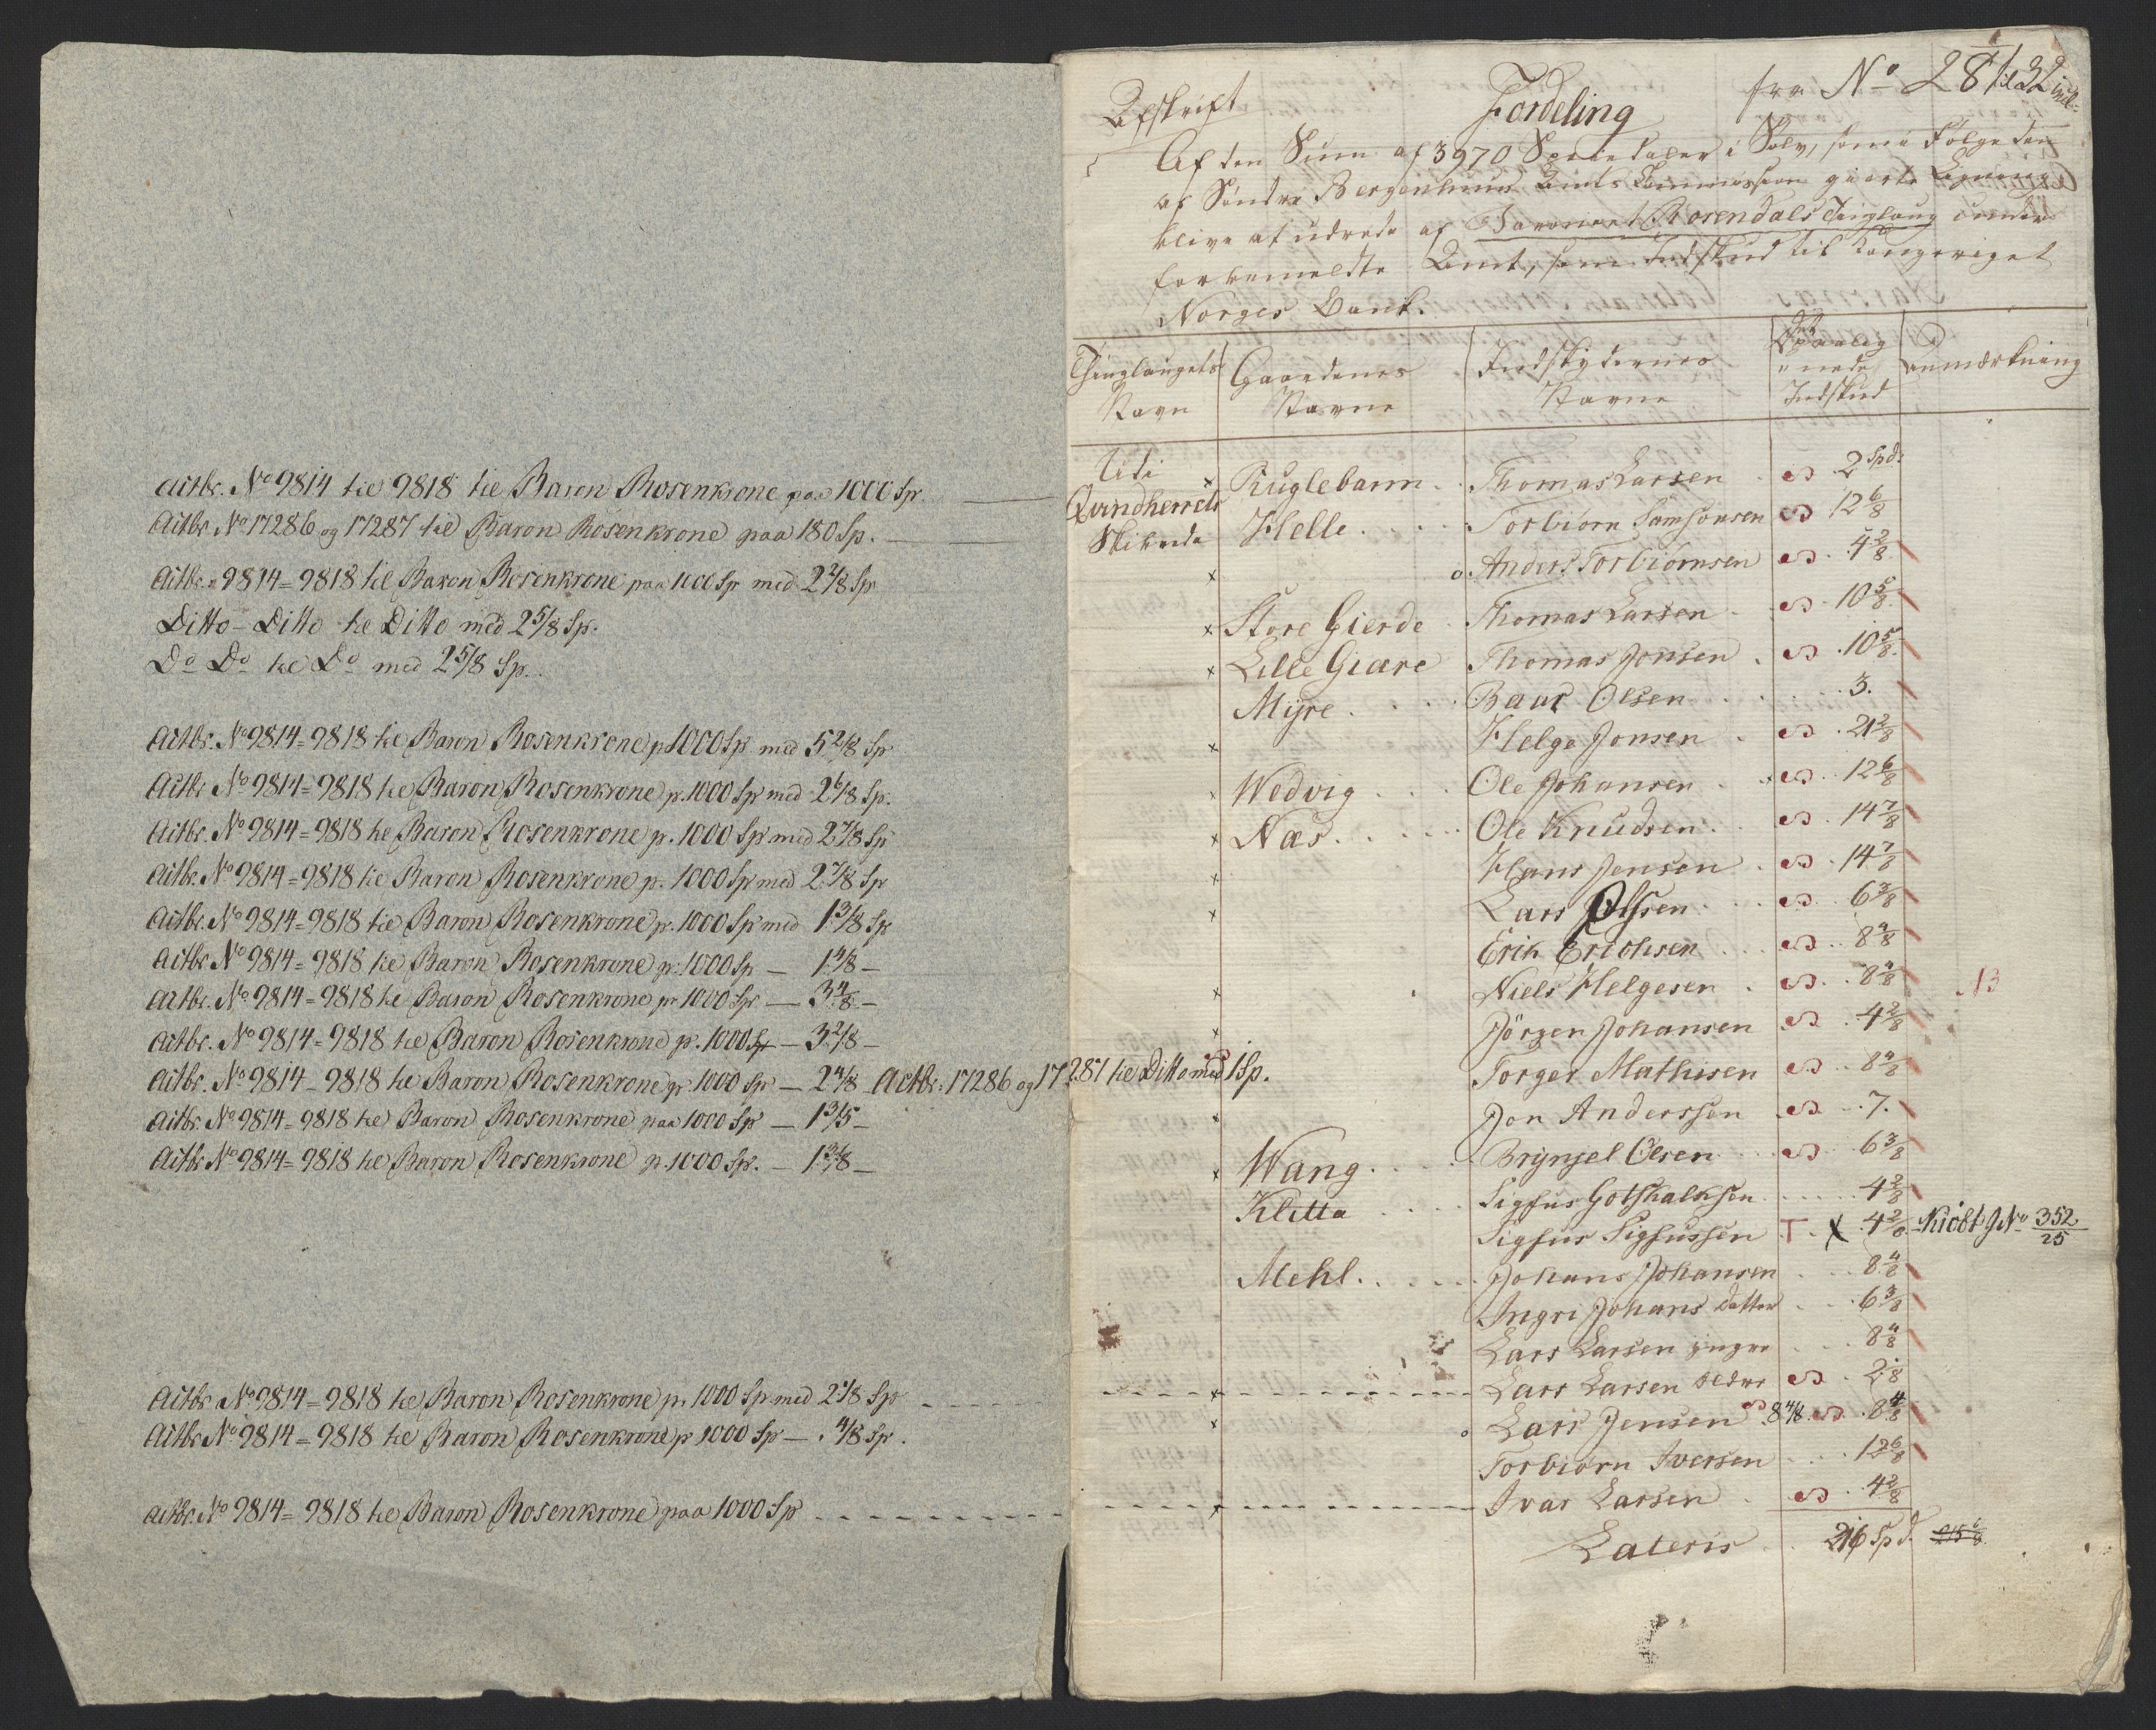 Actbr. No 9814 til 9818 til Baron Rosenkrone paa 1000 Sp.
Actbr No 17286 og 17287 til Baron Rosenkrone paa 180 Sp.
Actbr. 9814 = 9818 til Baron Rosenkrone paa 1000 Sp med 2 2/8 Sp
Ditto - Ditto til Ditto med 2 5/8 Sp.
Do Do til Do med 2 5/8 Sp.
Actbr. No 9814 = 9818 til Baron Rosenkrone p 1000 Sp med 5 2/8 Sp
Actbr No 9814 = 9818 til Baron Rosenkrone p. 1000 Sp med 2 6/8 Sp.
Actbr. No 9814 = 9818 til Baron Rosenkrone p. 1000 Sp med 2 7/8 Sp
Actbr. No 9814 = 9818 til Baron Rosenkrone p. 1000 Sp med 2 7/8 Sp
Actbr. No 9814 = 9818 til Baron Rosenkrone p. 1000 Sp med 1 3/8 Sp
Actbr No 9814 = 9818 til Baron Rosenkrone p. 1000 Sp — 1 4/8 —
Actbr. No 9814 = 9818 til Baron Rosenkrone pr 1000 Sp — 3 4/8 —
Actbr. No 9814 = 9818 til Baron Rosenkrone p. 1000 Sp — 3 2/8 —
Actbr. No 9814 - 9818 til Baron Rosenkrone pr 1000 Sp — 2 4/8 Actbr. 17286 og 17287 til Ditto med 1 Sp.
Actbr. No 9814 = 9818 til Baron Rosenkrone paa 1000 Sp — 1 3/5 —
Actbr No 9814 = 9818 til Baron Rosenkrone p. 1000 Sp. — 1 3/8 —
Actbr No 9814 = 9818 til Baron Rosenkrone p. 1000 Sp med Sp
Actbr No 9814 = 9818 til Baron Rosenkrone p 1000 Sp — . 4/8 Sp.
Actbr. No 9814 = 9818 til Baron Rosenkrone paa 1000 Sp
Afskrift Fordeling fra No 28 til 32 incl.
Af den Sum af 3970 Speciedaler i Sølv, som i Følge den
af Søndre Bergenhuus Amts Commission giorte Ligning
blive at udrede af Baroniet Rosendals Tinglaug under
forbemeldte Amt, som Indskud til Kongeriget
Norges Bank.
Thinglaugets Navn Gaardenes Navne Indskydernes Navne Indskud Anmærkning
Udi Quindherrets Skibrede
x Kuglebarm Thomas Larsen 2 Spd.
Helle Torbiörn Samsonsen 12 6/8
x o Anders Torbiörnsen 4 2/8
x Store Gierde Thomas Larsen 10 5/8
x Lille Giære Thomas Jonsen 10 5/8
Myre Baar Olsen 3.
x Helge Jonsen 21 2/8
x Wedvig Ole Johansen 12 6/8
x Næs Ole Knudsen 14 7/8
x Hans Jensen 14 7/8
x Lars Olsen 6 3/8
Erik Erichsen 8 4/8
x Niels Helgesen 8 4/8 NB
x Jörgen Johansen 4 2/8
Torger Mathisen 8 4/8
x Jon Anderssen 7.
x Wang Brynjel Olsen 6 3/8
Kletta Sigfus Gotskalksen 4 2/8
Sigfus Sigfussen T. X 4 2/8 Kiöbt J No 352/25
Mehl Johans Johansen 8 4/8
Ingri Johans datter 6 3/8
Lars Larsen yngre 8 4/8
x Lars Larsen ældre 2/8
x o Lars Jensen 8 4/8 8 4/8
Torbiörn Iversen 12 6/8
x Ivar Larsen 4 2/8
Lateris 216 Spd. 215 6/8